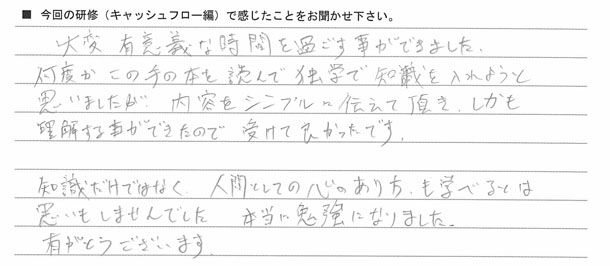 ■ 今回の研修（キャッシュフロー編）で感じたことをお聞かせ下さい。
大変 有意義な時間を過ごす事ができました。
何度か この手の本を 読んで 独学で 知識を 入れようと
思いましたが、内容を シンプルに 伝えて 頂き、しかも
理解する事ができたので 受けて 良かったです。
知識だけではなく、人間としての 心のあり方、も学べるとは
思いもしませんでした 本当に 勉強に なりました。
有がとうございます。